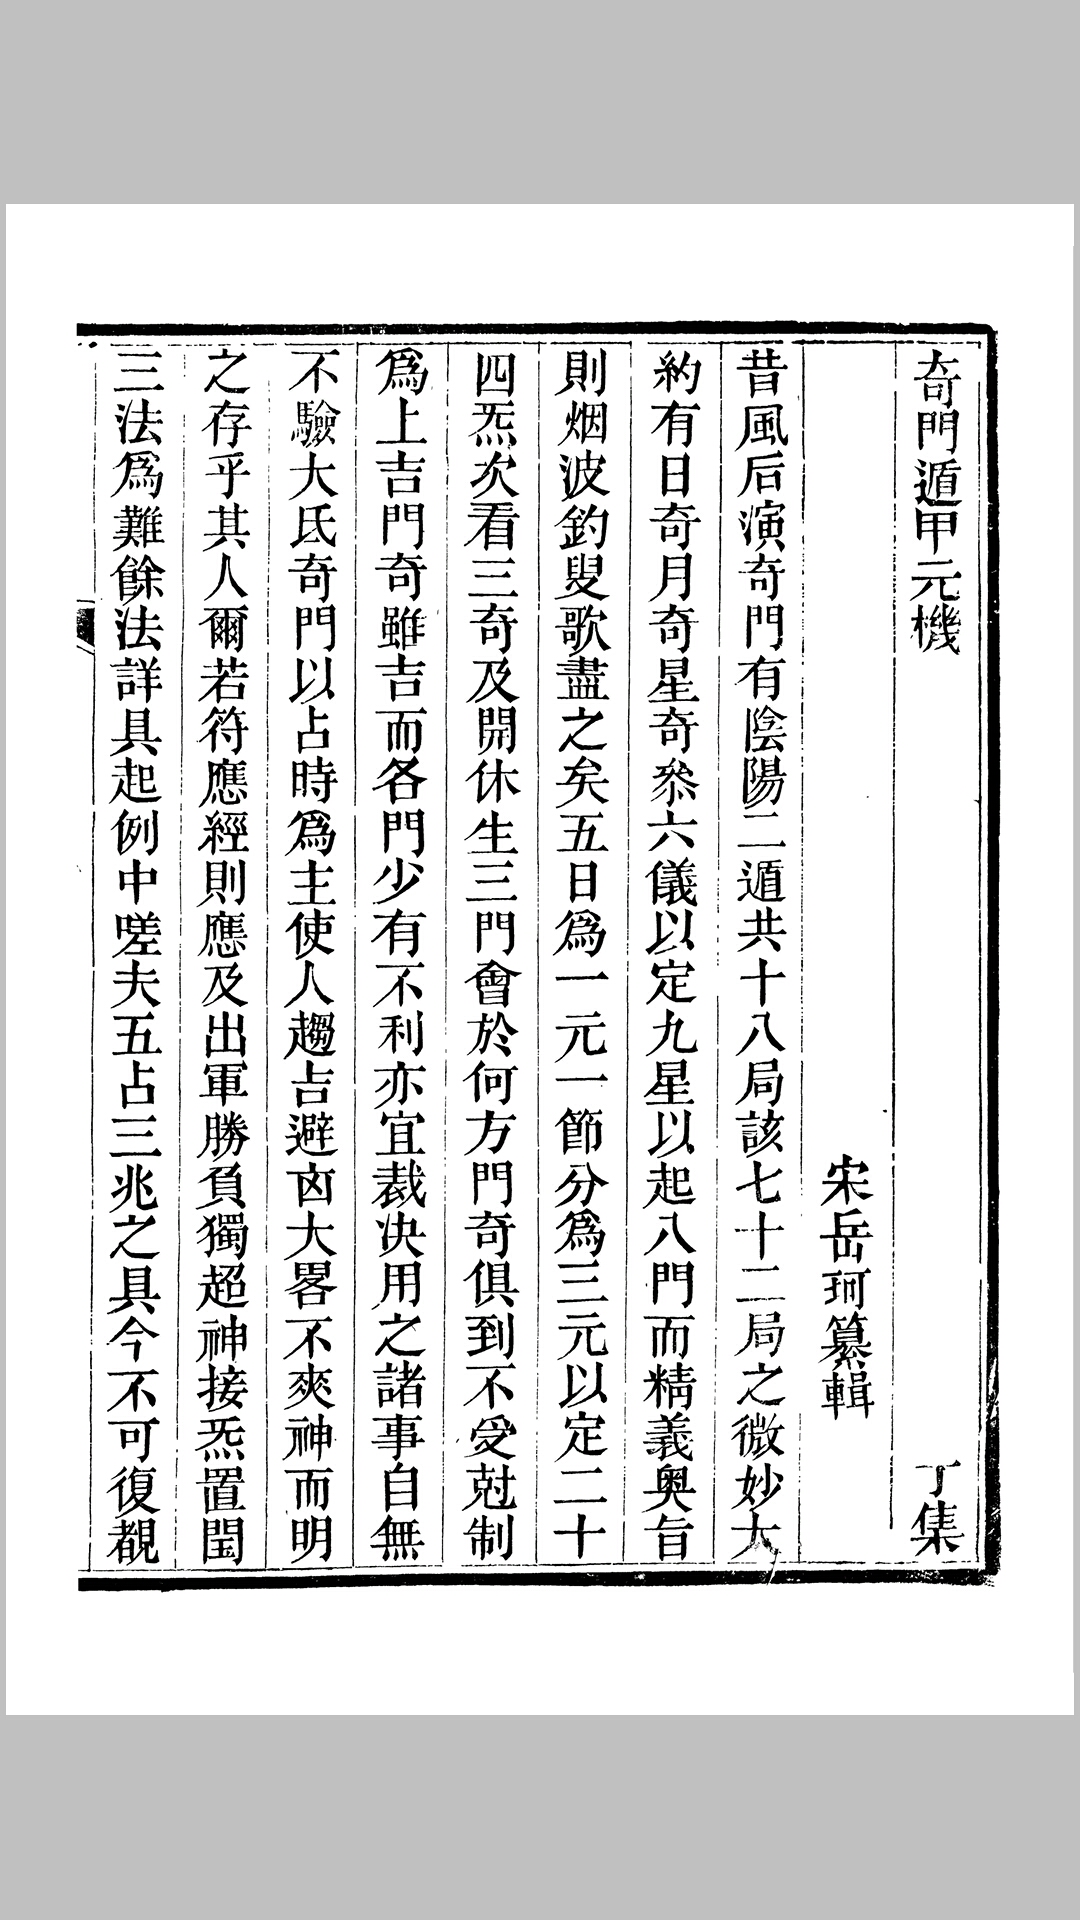 奇門遁甲元機 丁集
宋岳珂纂輯
昔風后演奇門有陰陽二遁共十八局該七十二局之微妙大
約有日奇月奇星奇叅六儀以定九星以起八門而精義奥旨
則烟波釣叟歌盡之矣五日爲一元一節分爲三元以定二十
四炁次看三奇及開休生三門會於何方門奇俱到不受尅制
爲上吉門奇雖吉而各門少有不利亦宜裁决用之諸事自無
不驗大氐奇門以占時爲主使人趨吉避㐫大畧不爽神而明
之存乎其人爾若符應經則應及出軍勝負獨超神接炁置閏
三法爲難餘法詳具起例中嗟夫五占三兆之具今不可復覩